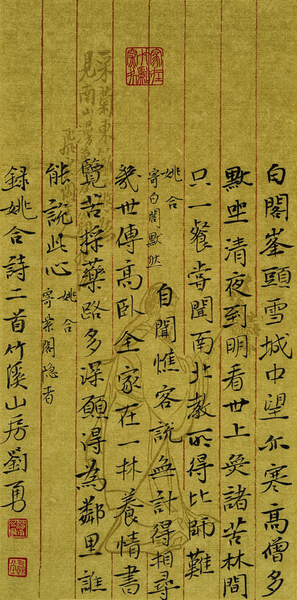 白閣峯頭雪城中望亦寒高僧多
默坐清夜到明看世上無諸苦林間
只一餐嘗聞南北教所得比師難
姚合
寄白閣默然
自聞樵客說無計得相尋
幾世傳高臥全家在一林養情書
覽苦採藥路多深願得為鄰里誰
能說此心
姚合
寄紫閣隱者
錄姚合詩二首竹溪山房劉勇
采菊東
見南山